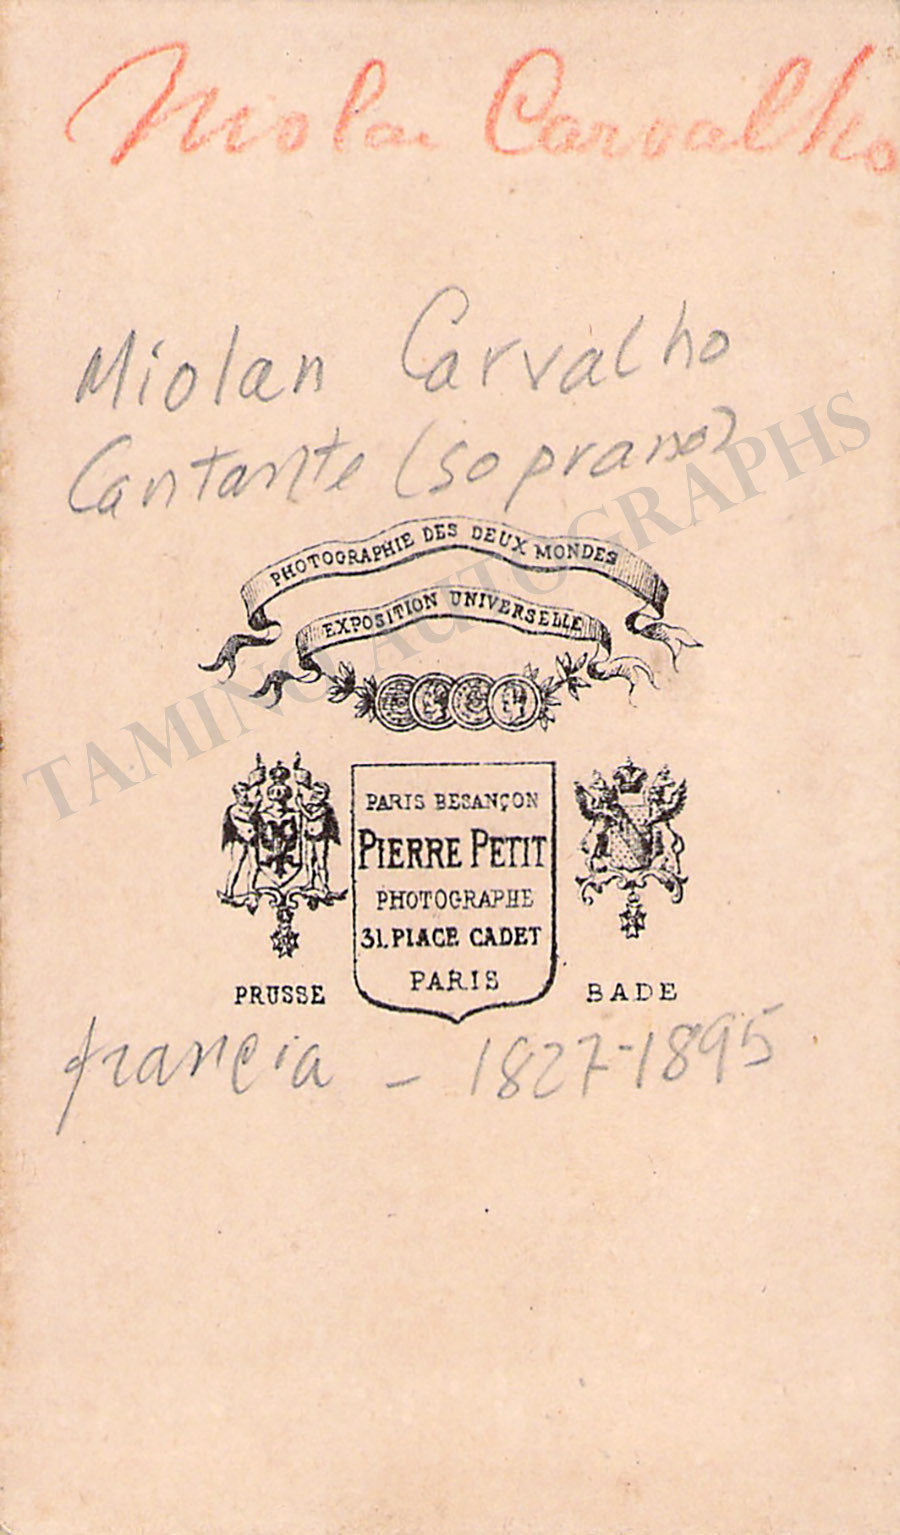 Miolan Carvalho
Miolan Carvalho
Cantante (soprano)
PHOTOGRAPHIE DES DEUX MONDES
EXPOSITION UNIVERSELLE
TAMINO AUTOGRAPHS
PARIS BESANÇON
PIERRE PETIT
PHOTOGRAPHE
31. PLACE CADET
PARIS
PRUSSE
BADE
francia - 1827-1895